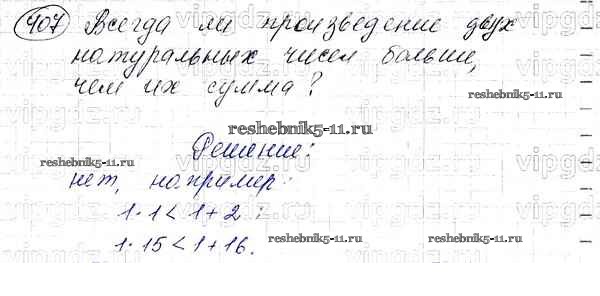 407 Всегда ли произведение двух
натуральных чисел больше,
чем их сумма?
reshebnik5-11.ru
Решение:
reshebnik5-11.ru
нет, например:
1·1 < 1+2 :
1·15 < 1+16.
reshebnik5-11.ru
reshebnik5-11.ru
vipgdz.ru